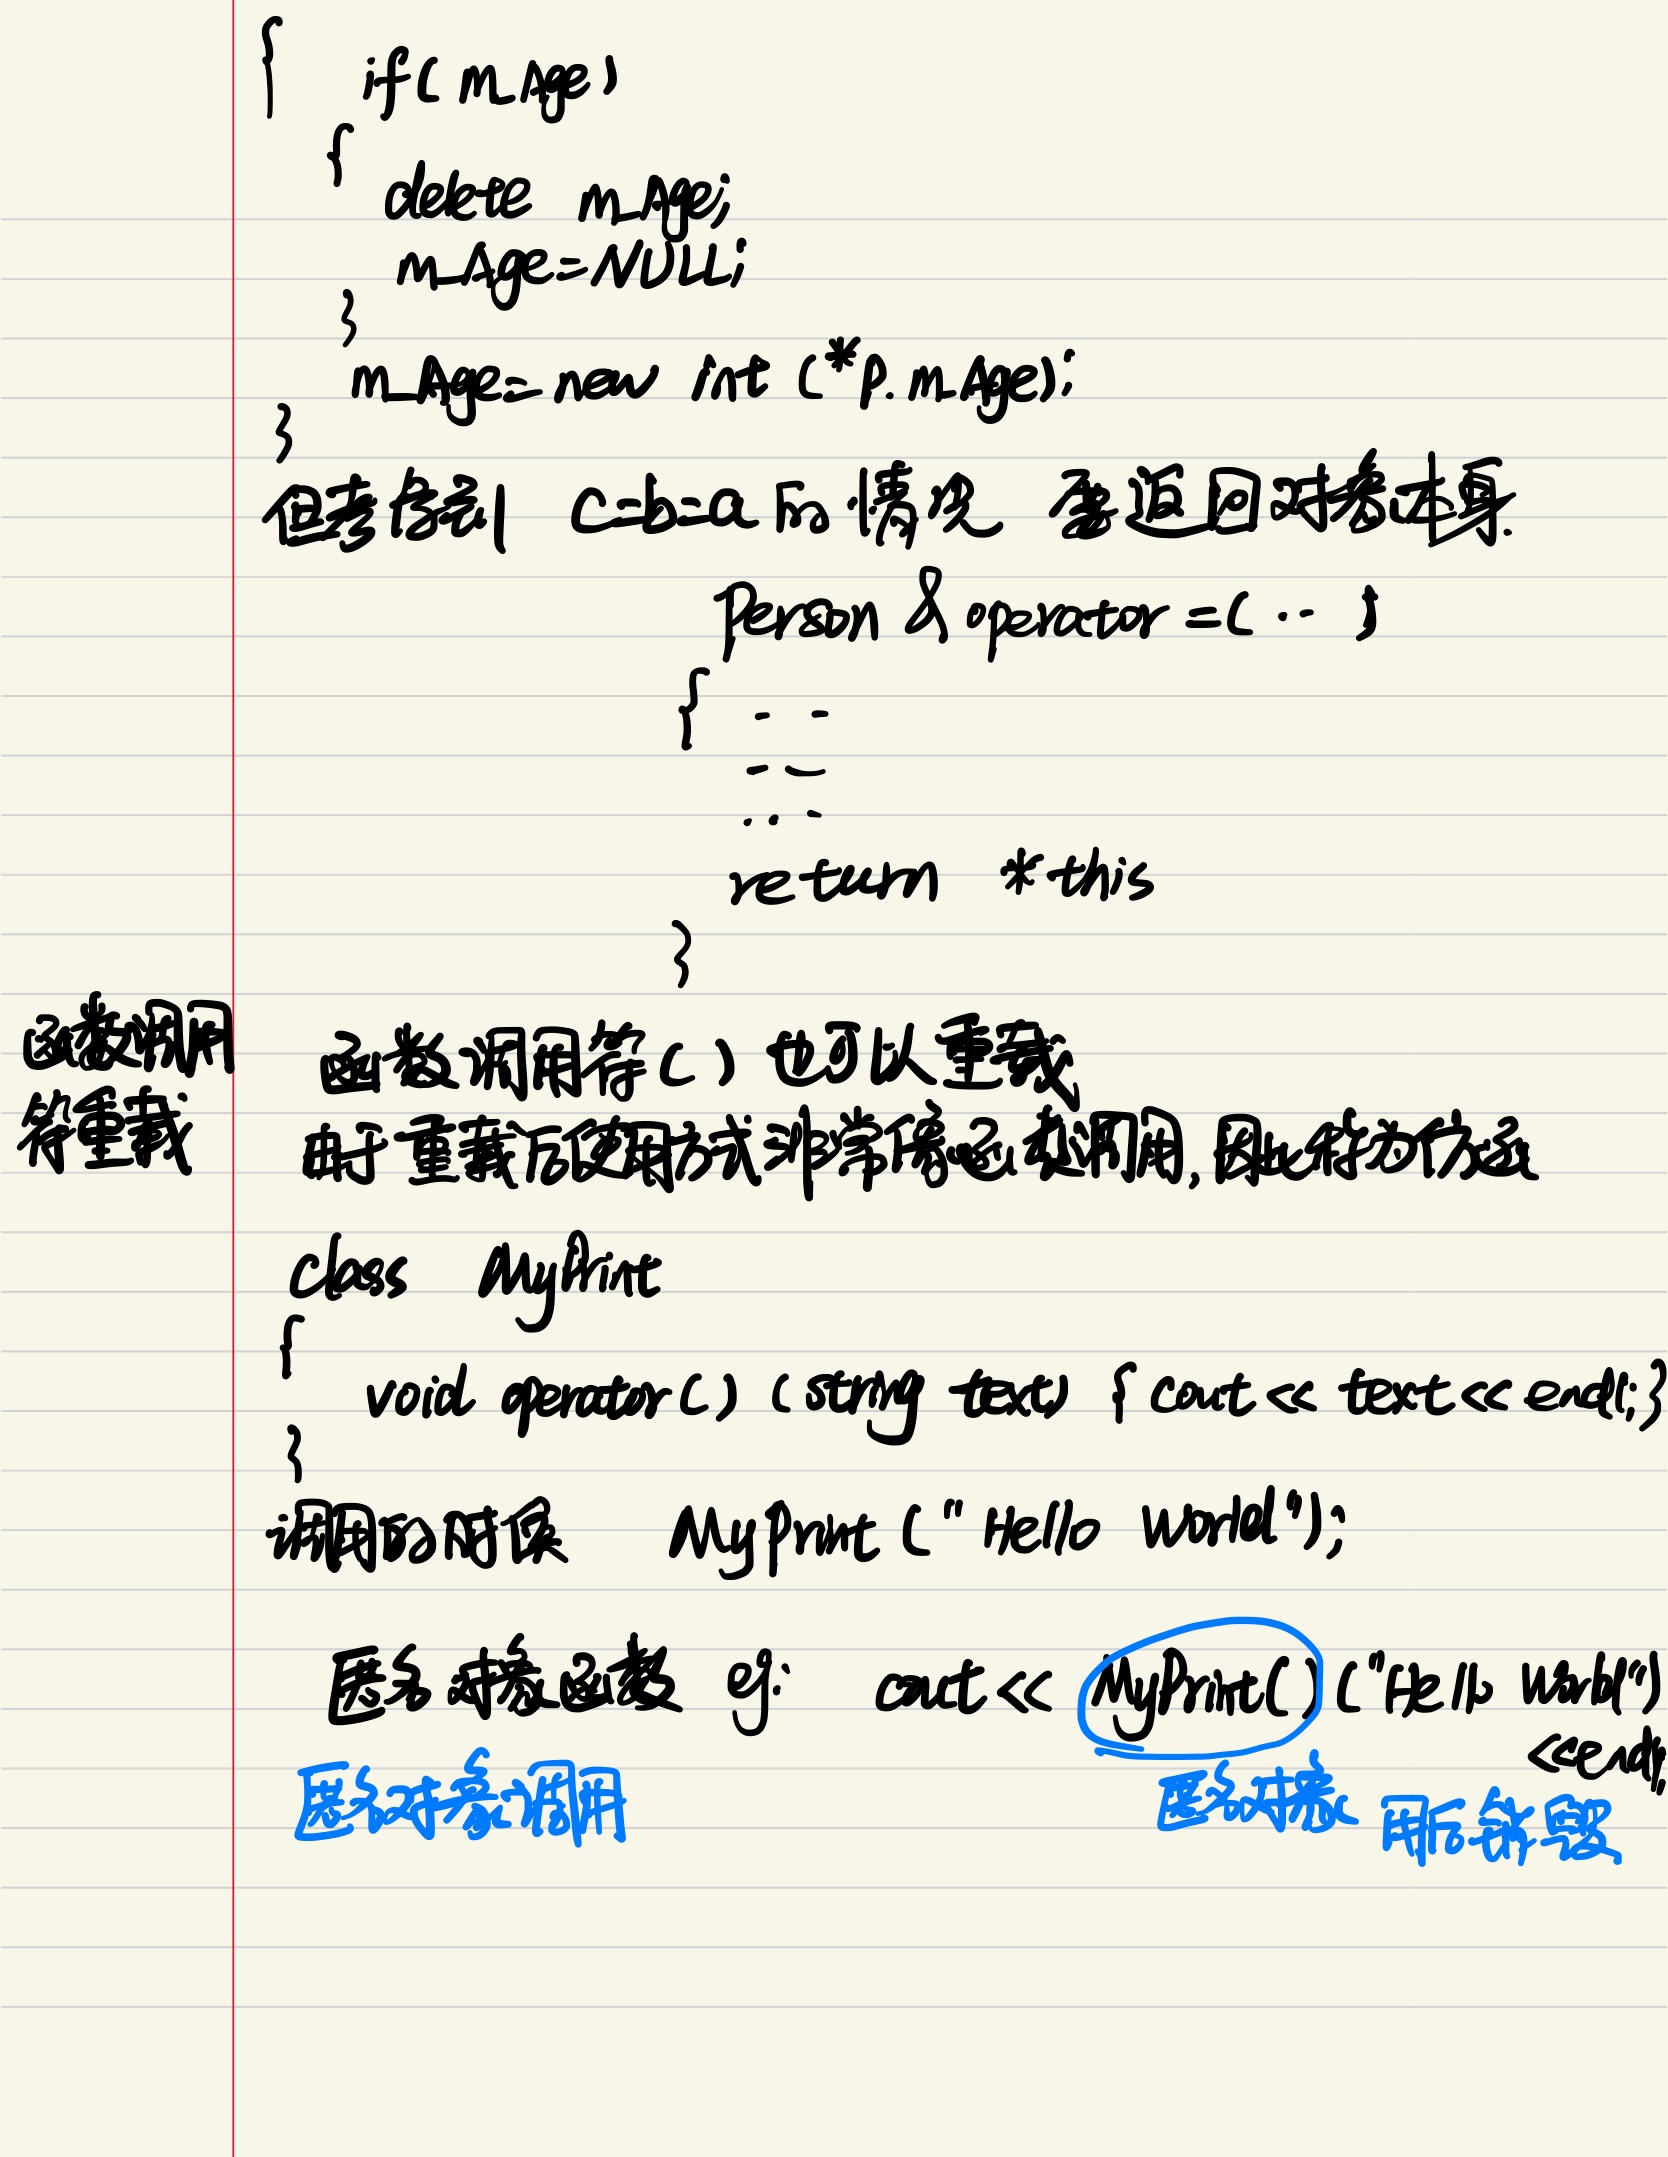 { if( m_Age)
{
delete m_Age;
m_Age=NULL;
}
m_Age= new int (*p.m_Age);
}
但考虑到 c=b=a 的情况 需返回对象本身.
Person & operator =( ·· )
{ - -
- -
·· -
return *this
}
函数调用
符重载
函数调用符( ) 也可以重载
由于重载后使用方式非常像函数调用,因此称为仿函
class MyPrint
{
void operator( ) (string text) { cout << text << endl; }
}
调用的时候 MyPrint ("Hello World");
匿名对象函数 eg: cout << MyPrint( ) ("Hello World")
<<endl;
匿名对象调用 匿名对象 用后销毁